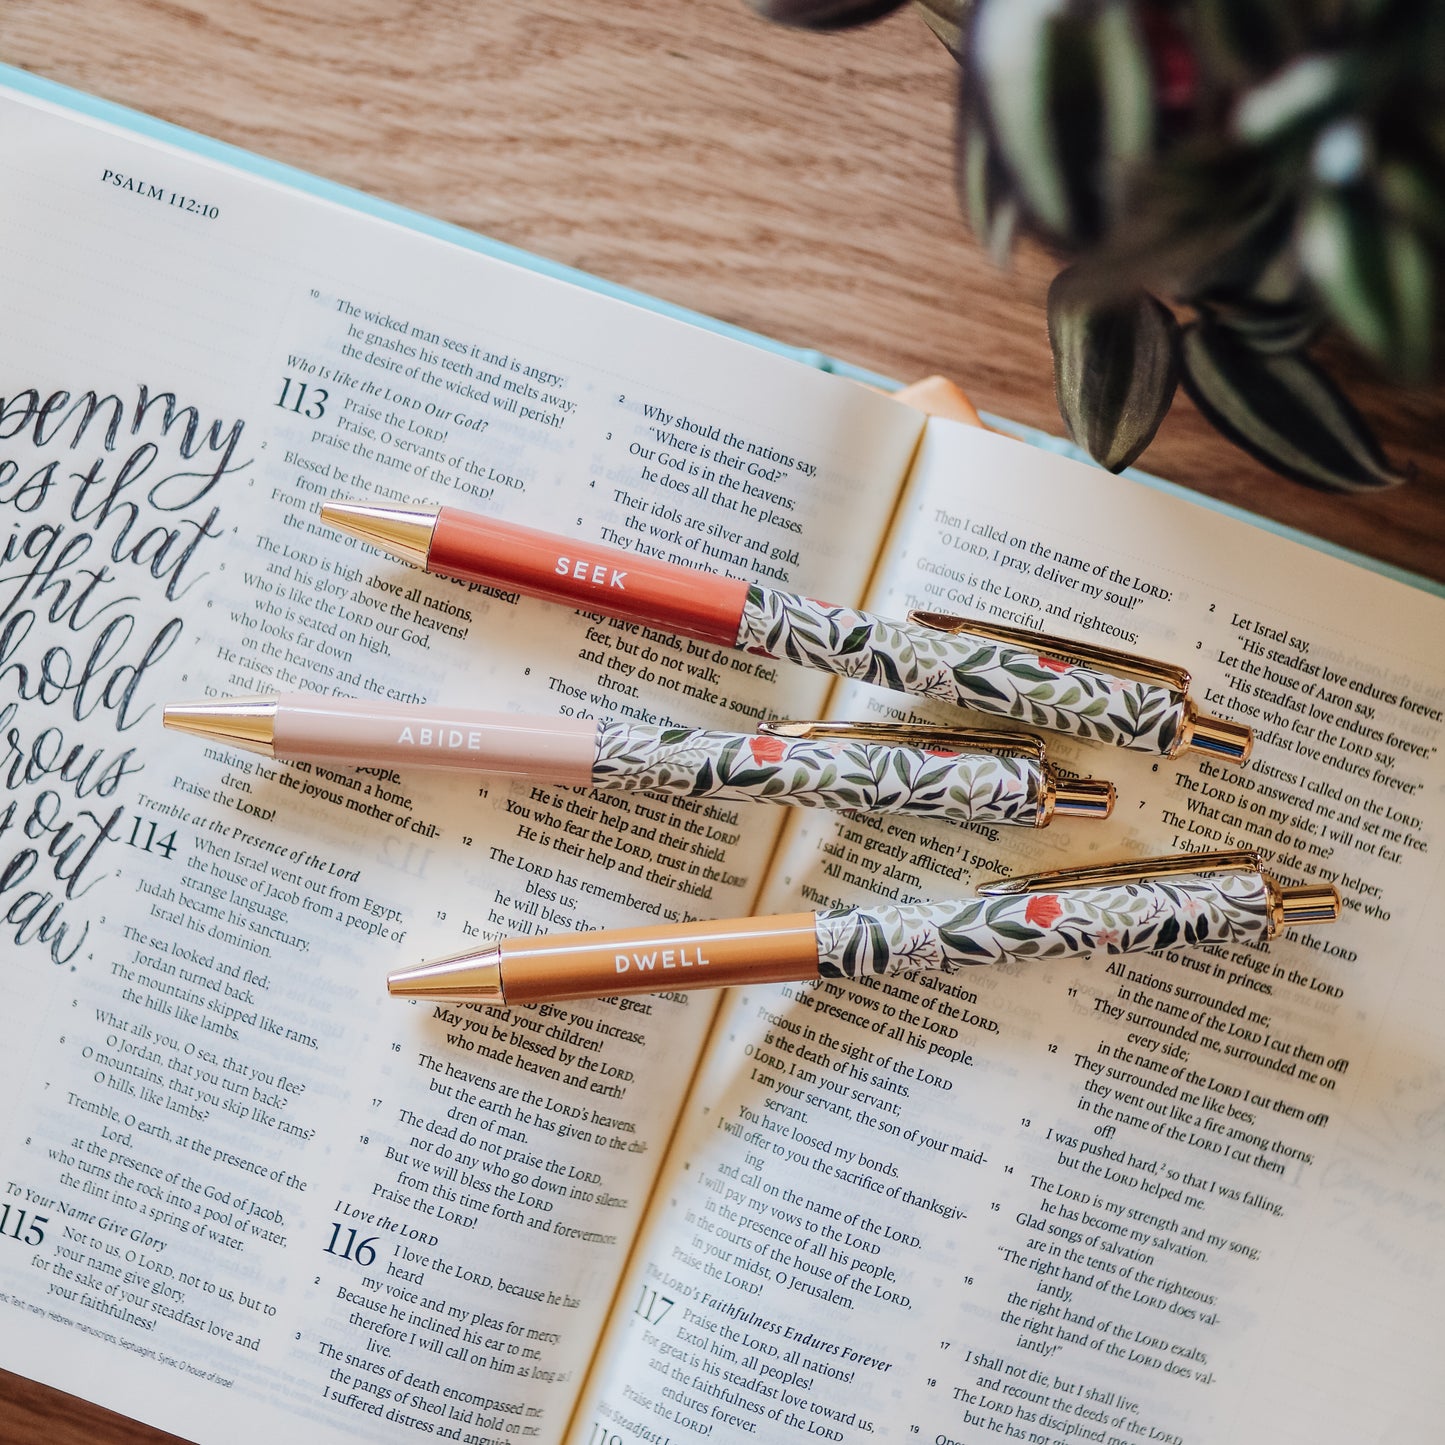 PSALM 112:10
pen my
es that
ight
hold
rous
out
law.
10 The wicked man sees it and is angry;
he gnashes his teeth and melts away;
the desire of the wicked will perish!
Who Is like the LORD Our God?
113 Praise the LORD!
Praise, O servants of the LORD,
praise the name of the LORD!
2 Blessed be the name of
from this
3 From the
the name of the LORD is to be praised!
4 The LORD is high above all nations,
and his glory above the heavens!
5 Who is like the LORD our God,
who is seated on high,
6 who looks far down
on the heavens and the earth?
7 He raises the poor from
and lifts
8 to
people.
ren woman a home,
making her the joyous mother of chil-
dren.
Praise the LORD!
Tremble at the Presence of the Lord
114 When Israel went out from Egypt,
the house of Jacob from a people of
strange language,
2 Judah became his sanctuary,
Israel his dominion.
3 The sea looked and fled;
Jordan turned back.
4 The mountains skipped like rams,
the hills like lambs.
5 What ails you, O sea, that you flee?
O Jordan, that you turn back?
6 O mountains, that you skip like rams?
O hills, like lambs?
7 Tremble, O earth, at the presence of the
Lord,
at the presence of the God of Jacob,
8 who turns the rock into a pool of water,
the flint into a spring of water.
To Your Name Give Glory
115 Not to us, O LORD, not to us, but to
your name give glory,
for the sake of your steadfast love and
your faithfulness!
Text; many Hebrew manuscripts, Septuagint, Syriac O house of Israel
2 Why should the nations say,
"Where is their God?"
3 Our God is in the heavens;
he does all that he pleases.
4 Their idols are silver and gold,
the work of human hands.
5 They have mouths, but do
They have hands, but do not feel;
feet, but do not walk;
and they do not make a sound in
throat.
8 Those who make them
so do
of Aaron, trust in the LORD!
He is their help and their shield.
11 You who fear the LORD, trust in the LORD!
He is their help and their shield.
12 The LORD has remembered us; he
bless us;
he will bless the
he will bl
13 he will
the great.
LORD give you increase,
you and your children!
May you be blessed by the LORD,
who made heaven and earth!
16 The heavens are the LORD's heavens,
but the earth he has given to the chil-
dren of man.
17 The dead do not praise the LORD,
nor do any who go down into silence.
18 But we will bless the LORD
from this time forth and forevermore.
Praise the LORD!
I Love the LORD
116 I love the LORD, because he has
heard
my voice and my pleas for mercy.
2 Because he inclined his ear to me,
therefore I will call on him as long as I
live.
3 The snares of death encompassed me;
the pangs of Sheol laid hold on me;
I suffered distress and anguish
SEEK
ABIDE
DWELL
Then I called on the name of the LORD:
"O LORD, I pray, deliver my soul!"
Gracious is the LORD, and righteous;
our God is merciful.
The LORD
simple;
For you have
from
living.
believed, even when¹ I spoke:
"I am greatly afflicted";
I said in my alarm,
"All mankind are
What shall
of salvation
the name of the LORD,
pay my vows to the LORD
in the presence of all his people.
Precious in the sight of the LORD
is the death of his saints.
O LORD, I am your servant;
I am your servant, the son of your maid-
servant.
You have loosed my bonds.
I will offer to you the sacrifice of thanksgiv-
ing
and call on the name of the LORD.
I will pay my vows to the LORD
in the presence of all his people,
in the courts of the house of the LORD,
in your midst, O Jerusalem.
Praise the LORD!
The LORD's Faithfulness Endures Forever
117 Praise the LORD, all nations!
Extol him, all peoples!
For great is his steadfast love toward us,
and the faithfulness of the LORD
endures forever.
Praise the LORD!
His Steadfast L
2 Let Israel say,
"His steadfast love endures forever."
3 Let the house of Aaron say,
"His steadfast love endures forever."
Let those who fear the LORD say,
"His steadfast love endures forever."
my distress I called on the LORD;
the LORD answered me and set me free.
6 The LORD is on my side; I will not fear.
What can man do to me?
7 The LORD is on my side as my helper;
I shall
ose who
take refuge in the LORD
man.
to trust in princes.
All nations surrounded me;
in the name of the LORD I cut them off!
11 They surrounded me, surrounded me on
every side;
in the name of the LORD I cut them off!
12 They surrounded me like bees;
they went out like a fire among thorns;
in the name of the LORD I cut them
off!
13 I was pushed hard,² so that I was falling,
but the LORD helped me.
14 The LORD is my strength and my song;
he has become my salvation.
15 Glad songs of salvation
are in the tents of the righteous:
"The right hand of the LORD does val-
iantly,
16 the right hand of the LORD exalts,
the right hand of the LORD does val-
iantly!"
17 I shall not die, but I shall live,
and recount the deeds of the LORD.
18 The LORD has disciplined me
but he has not gi
19 Open